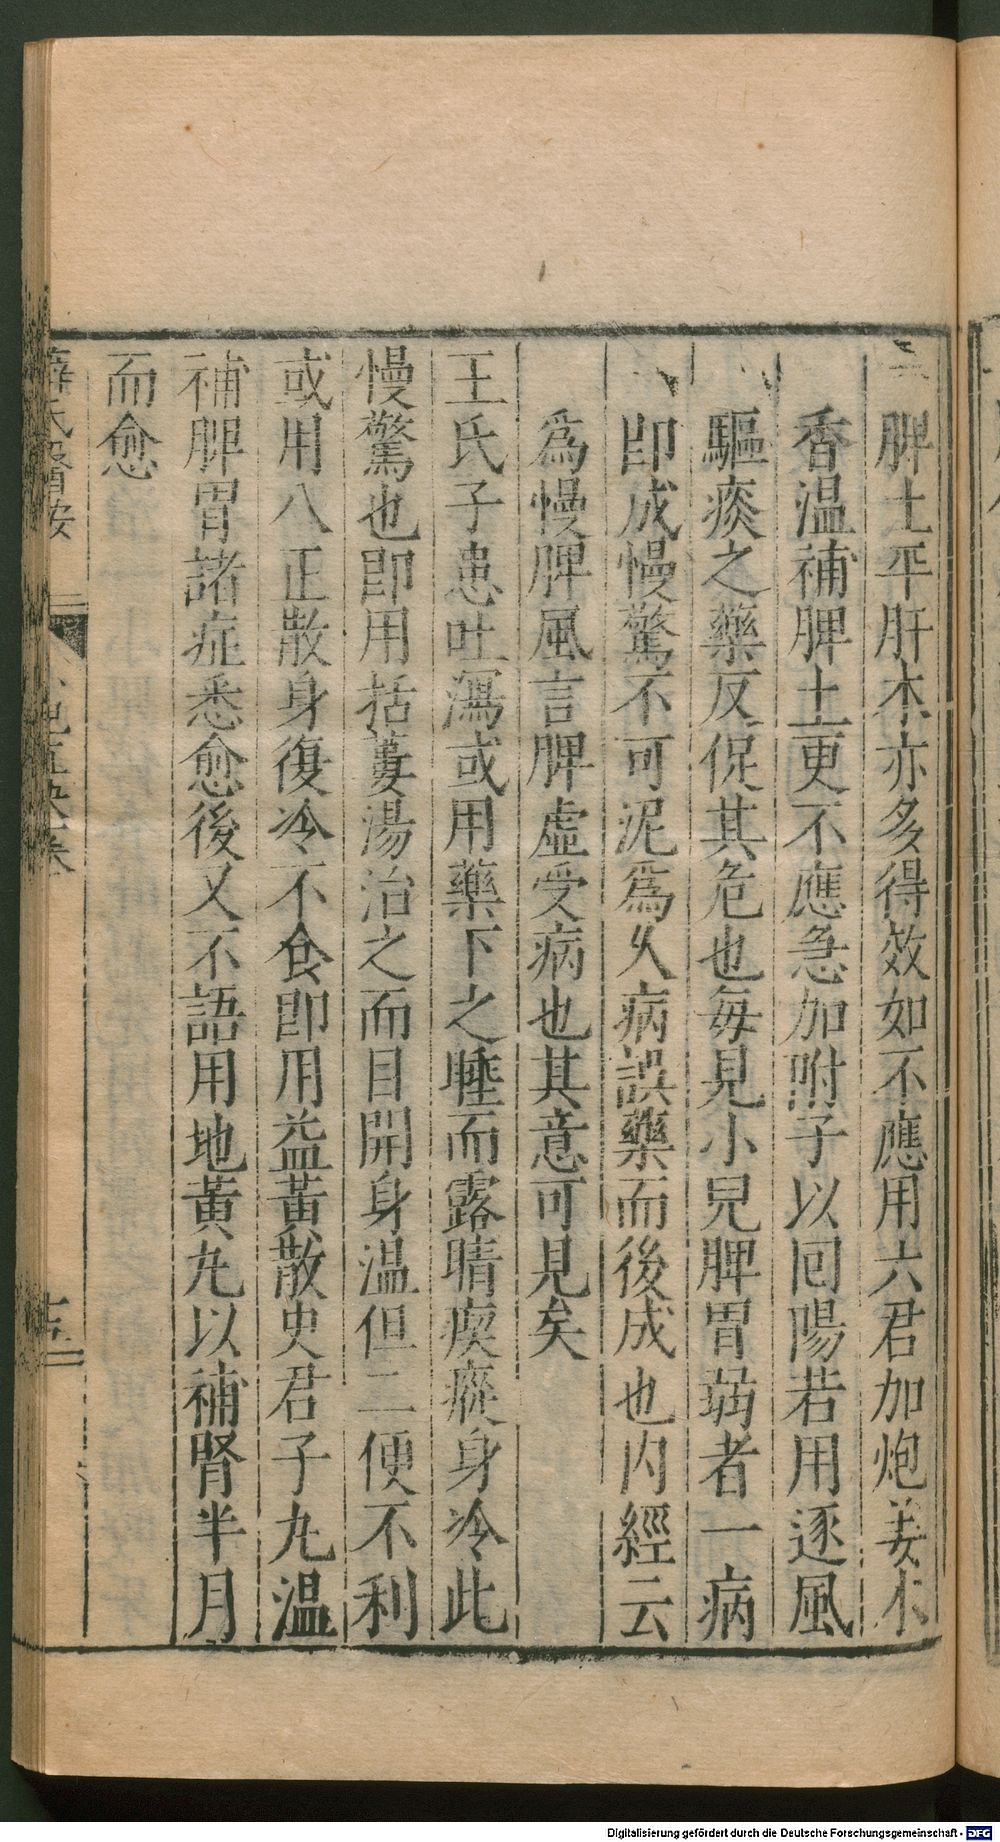 脾土平肝木亦多得效如不應用六君加炮姜木
香温補脾土更不應急加附子以回陽若用逐風
驅痰之藥反促其危也每見小兒脾胃弱者一病
即成慢驚不可泥爲久病誤藥而後成也内經云
爲慢脾風言脾虛受病也其意可見矣
王氏子患吐瀉或用藥下之睡而露睛瘈瘲身冷此
慢驚也即用括蔞湯治之而目開身温但二便不利
或用八正散身復冷不食即用益黃散史君子丸温
補脾胃諸症悉愈後又不語用地黃丸以補腎半月
而愈
薛氏醫按
Digitalisierung gefördert durch die Deutsche Forschungsgemeinschaft - DFG